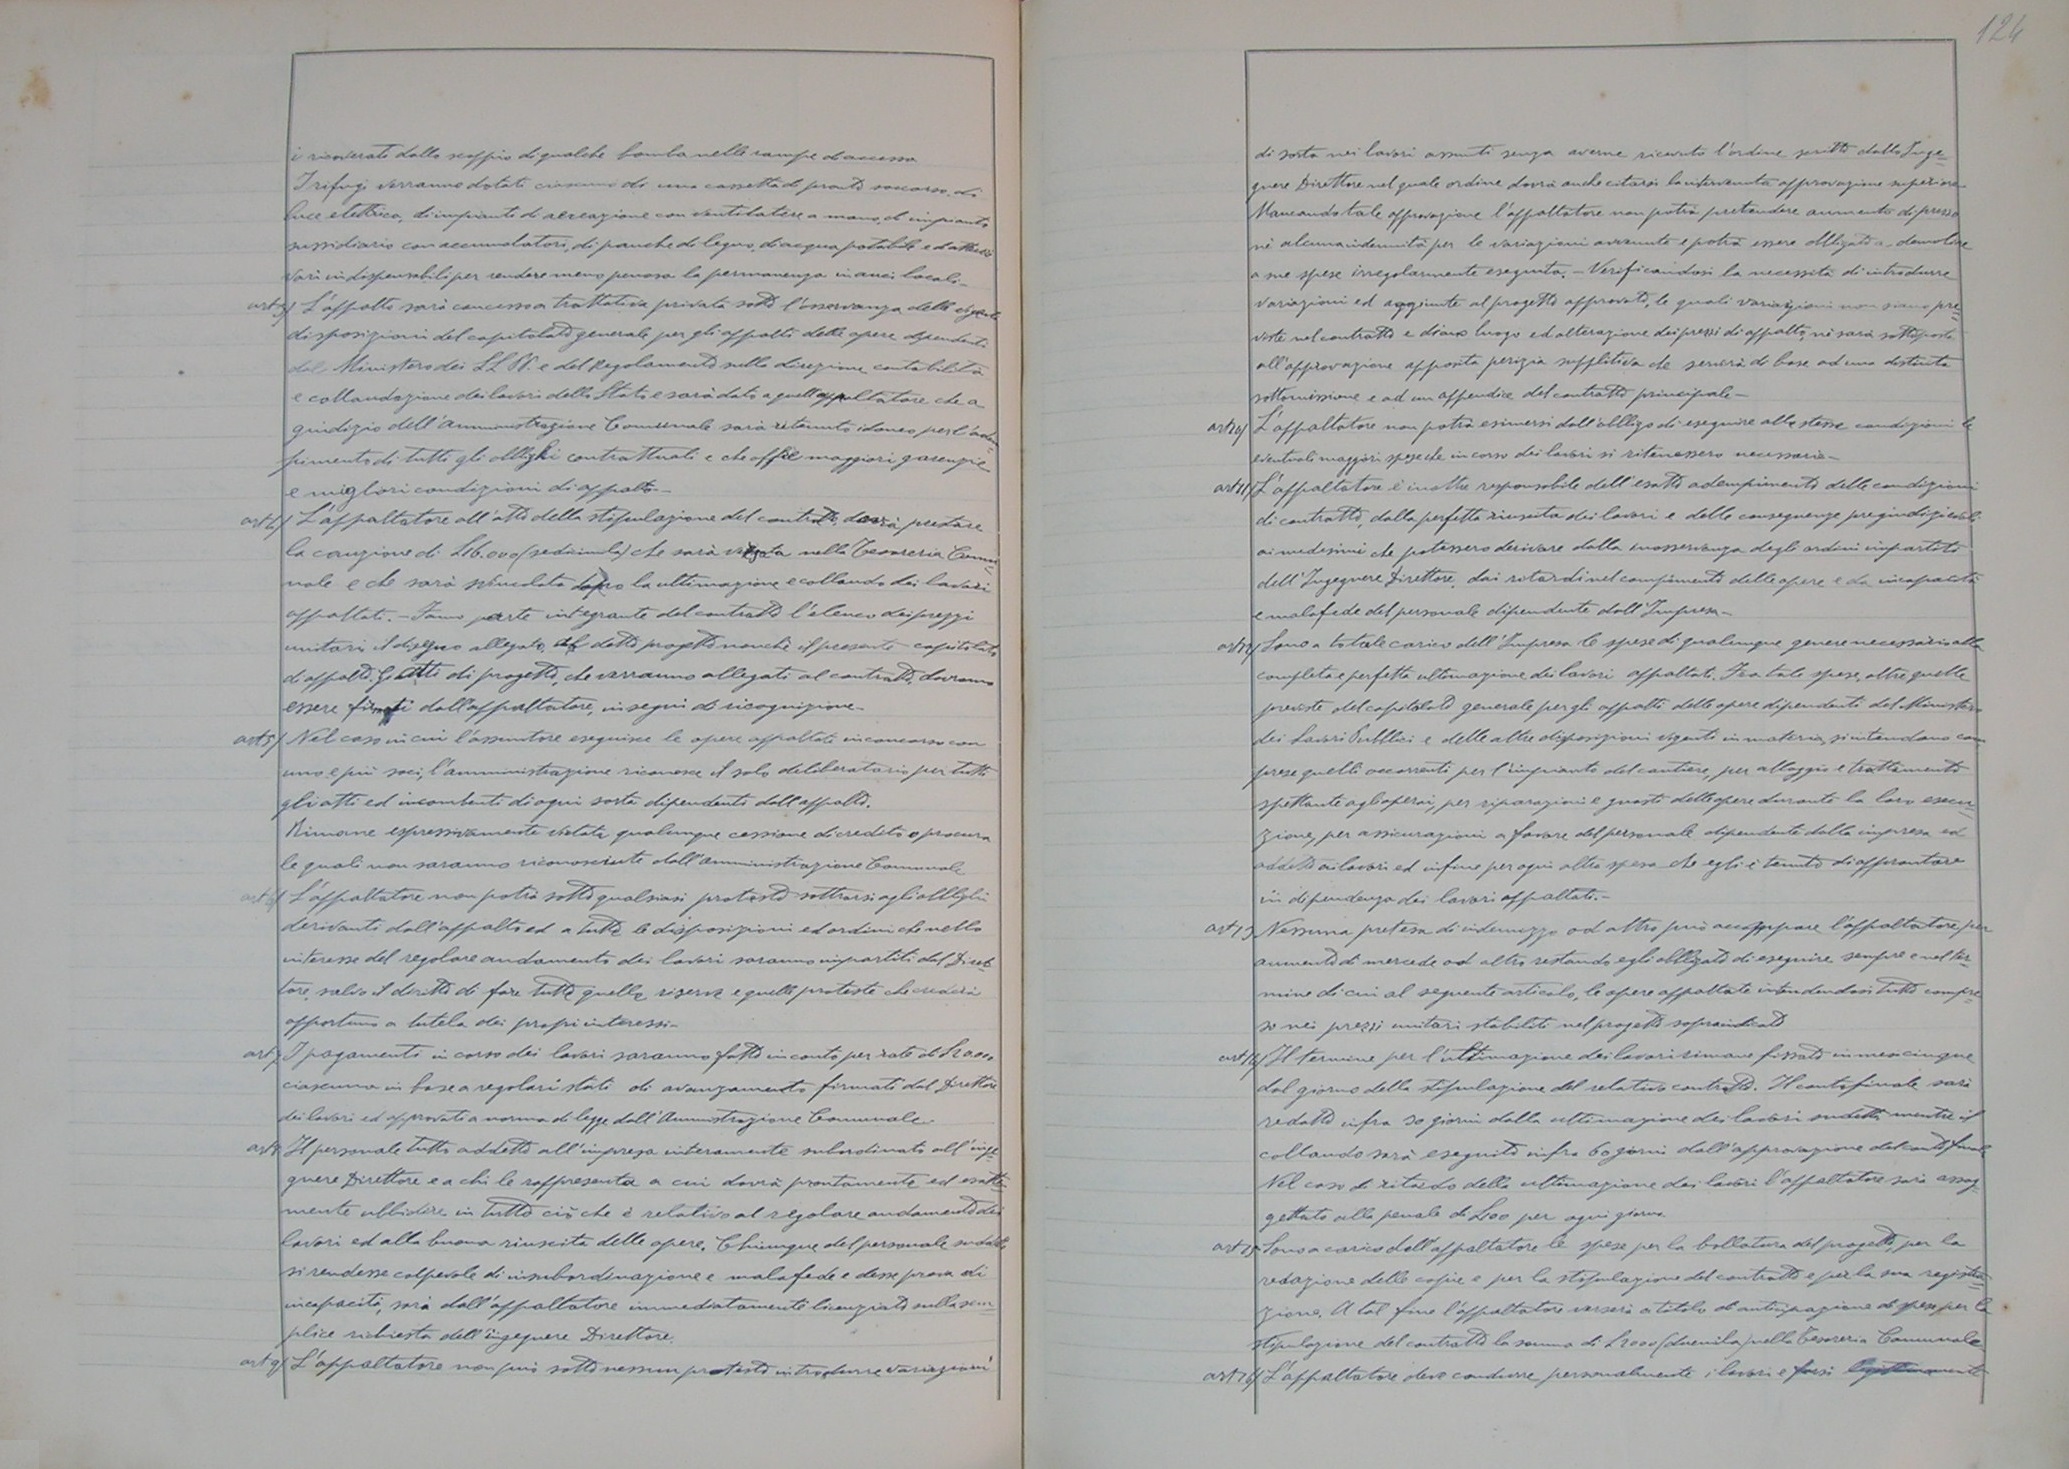 i ricoverati dallo scoppio di qualche bomba nelle rampe di accesso
I rifugi verranno dotati ciascuno di una cassetta di pronto soccorso, di
luce elettrica, di impianti di aereazione con ventilatore a mano, d'impianto
sussidiario con accumulatori, di panche di legno, di acqua potabile e d'attrezzi
vari indispensabili per rendere meno penosa la permanenza in locali.-
art 3/ L'appalto sarà concesso a trattativa privata sotto l'osservanza delle vigenti
disposizioni del capitolato generale per gli appalti delle opere dipendenti
dal Ministero dei LL.PP. e del Regolamento sulla direzione contabilità
e collaudazione dei lavori dello Stato e sarà dato a quell'appaltatore che a
giudizio dell'Amministrazione Comunale sarà ritenuto idoneo per l'adem-
pimento di tutti gli obblighi contrattuali e che offre maggiori garenzie
e migliori condizioni di appalto.-
art 4/ L'appaltatore all'atto della stipulazione del contratto, dovrà prestare
la cauzione di L16.000 (sedicimila) che sarà versata nella Tesoreria Comu-
nale e che sarà svincolata dopo la ultimazione e collaudo dei lavori
appaltati.- Fanno parte integrante del contratto l'elenco dei prezzi
unitari il disegno allegato al detto progetto nonchè il presente capitolato
di appalto. Gli atti di progetto, che verranno allegati al contratto, dovranno
essere firmati dall'appaltatore, in segno di ricognizione.-
art 5/ Nel caso in cui l'assuntore eseguisce le opere appaltate in concorso con
uno e più soci, l'amministrazione riconosce il solo deliberatario per tutti
gli atti ed incombenti di ogni sorta dipendenti dall'appalto.
Rimane espressivamente vietata qualunque cessione di credito o procura
le quali non saranno riconosciute dall'Amministrazione Comunale
art 6/ L'appaltatore non potrà sotto qualsiasi protesto sottrarsi agli obblighi
derivanti dall'appalto ed a tutte le disposizioni ed ordini che nello
interesse del regolare andamento dei lavori saranno impartiti dal Diret-
tore, salvo il diritto di fare tutte quelle riserve e quelle proteste che crederà
opportuno a tutela dei propri interessi.-
art 7 I pagamenti in corso dei lavori saranno fatti in conto per rate di
ciascuna in base a regolari stati di avanzamento firmati dal Direttore
dei lavori ed approvati a norma di legge dall'Amministrazione Comunale.
art 8 Il personale tutto addetto all'impresa interamente subordinato all'inge-
gnere Direttore e a chi le rappresenta a cui dovrà prontamente ed esatta-
mente ubbidire in tutto ciò che è relativo al regolare andamento dei
lavori ed alla buona riuscita delle opere. Chiunque del personale sudetto
si rendesse colpevole di insubordinazione e malafede e desse prova di
incapacità, sarà dall'appaltatore immediatamente licenziato sulla sem-
plice richiesta dell'ingegnere Direttore.
art 9/ L'appaltatore non può sotto nessun protesto introdurre variazioni
124
di sorta nei lavori assunti senza averne ricevuto l'ordine scritto dallo Inge-
gnere Direttore nel quale ordine dovrà anche citarsi la intervenuta approvazione superiore
Mancando tale approvazione l'appaltatore non potrà pretendere aumento di prezzo
nè alcuna indennità per le variazioni avvenute e potrà essere obbligato a demolire
a sue spese irregolarmente eseguita.- Verificandosi la necessità di introdurre
variazioni ed aggiunte al progetto approvato, le quali variazioni non siano pre-
viste nel contratto e diano luogo ed alterazione dei prezzi di appalto, ne sarà sottoposta
all'approvazione apposita perizia suppletiva che servirà di base ad una distinta
sottomissione e ad un appendice del contratto principale.-
art 10/ L'appaltatore non potrà esimersi dall'obbligo di eseguire alle stesse condizioni le
eventuali maggiori spese che in corso dei lavori si ritenessero necessarie.-
art 11/ L'appaltatore è inoltre responsabile dell'esatto adempimento delle condizioni
di contratto, dalla perfetta riuscita dei lavori e delle conseguenze pregiudizievoli
ai medesimi che potessero derivare dalla inosservanza degli ordini impartiti
dell'Ingegnere Direttore, dai ritardi nel compimento delle opere e da incapacità
e malafede del personale dipendente dall'Impresa.-
art 12/ Sono a totale carico dell'Impresa le spese di qualunque genere necessario alla
completa e perfetta ultimazione dei lavori appaltati. Fra tale spese, oltre quelle
previste del capitolato generale per gli appalti delle opere dipendenti dal Ministero
dei Lavori Pubblici e delle altre disposizioni vigenti in materia, si intendono com-
prese quelli occorrenti per l'impianto del cantiere, per alloggio e trattamento
spettante agli operai, per riparazioni e guasti delle opere durante la loro esecu-
zione, per assicurazioni a favore del personale dipendente dalla impresa ed
addetto ai lavori ed infine per ogni altra spesa che egli è tenuto di approntare
in dipendenza dei lavori appaltati.-
art 13 Nessuna pretesa di indennizzo od altro può accampare l'appaltatore per
aumento di mercede od altro restando egli obbligato di eseguire sempre e nel ter-
mine di cui al seguente articolo, le opere appaltate intendendosi tutto compre-
so nei prezzi unitari stabiliti nel progetto sopraindicato
art 14/ Il termine per l'ultimazione dei lavori rimane fissato in mesi cinque
dal giorno della stipulazione del relativo contratto. Il conto finale sarà
redatto infra 30 giorni dalla ultimazione dei lavori sudetti mentre il
collaudo sarà eseguito infra 60 giorni dall'approvazione del conto finale
Nel caso di ritardo della ultimazione dei lavori l'appaltatore sarà assog-
gettato alla penale di L100 per ogni giorno.
art 15 Sono a carico dell'appaltatore le spese per la bollatura del progetto, per la
redazione delle copie e per la stipulazione del contratto e per la sua registra-
zione. A tal fine l'appaltatore verserà a titolo di anticipazione di spese per la
stipulazione del contratto la somma di L2000 (duemila) nella Tesoreria Comunale
art 16/ L'appaltatore deve condurre personalmente i lavori e farsi